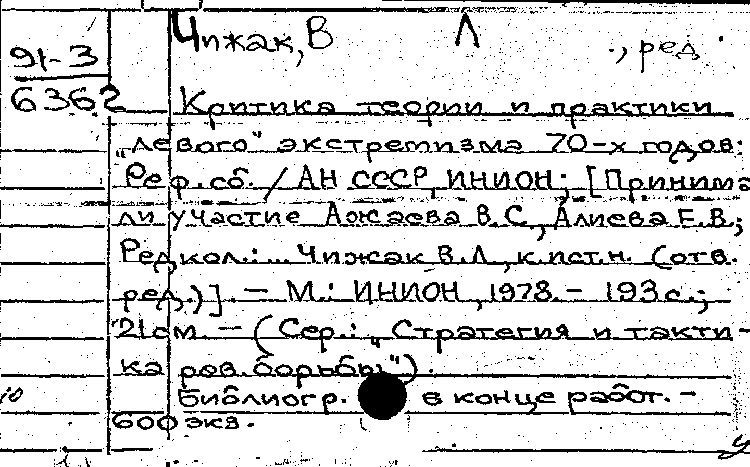 Чижак, В Л ., ред.
91-3
6362
Критика теории и практики
„левого" экстремизма 70-х годов:
Реф. сб. / АН СССР, ИНИОН; [Принима
ли участие Ажаева В.С., Алиева Е.В.;
Редкол.: ... Чижак В.Л., к.ист.н. (отв.
ред.)]. – М.: ИНИОН, 1978. – 193 с.;
21 см. – (Сер.: „Стратегия и такти-
ка рев. борьбы").
Библиогр. в конце работ. –
600 экз.